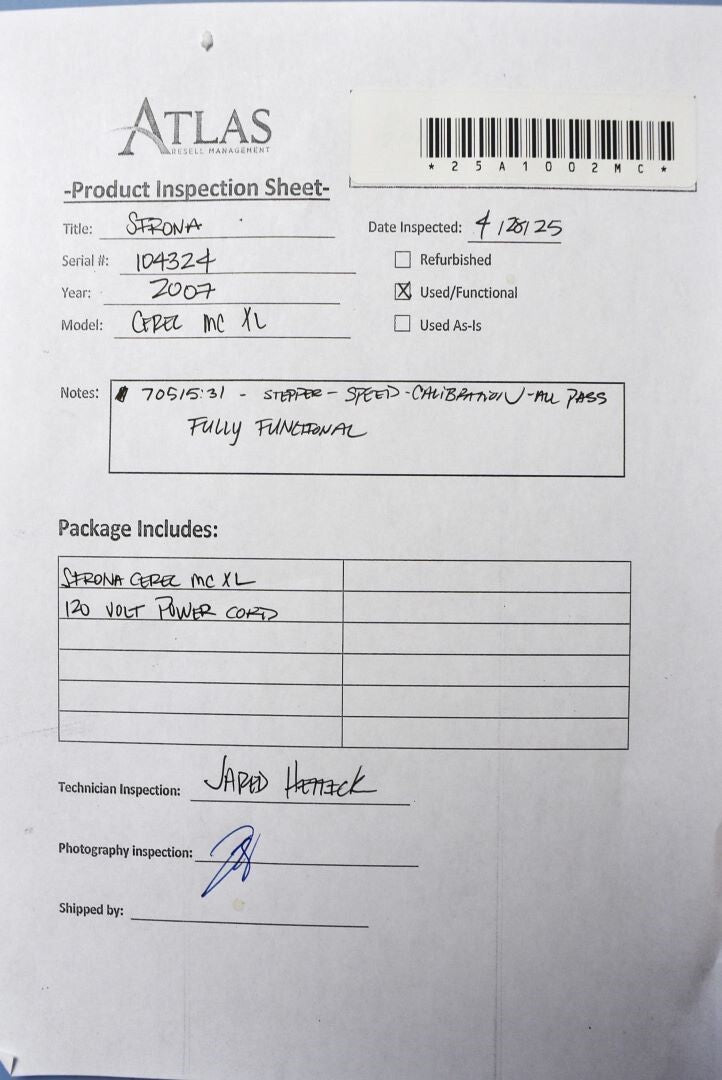 ATLAS
RESELL MANAGEMENT
*25A1002MC*
-Product Inspection Sheet-
Title: SIRONA
Date Inspected: 4/28/25
Serial #: 104324
Refurbished
Year: 2007
Used/Functional
Model: CEREC MC XL
Used As-Is
Notes: 70515:31 - STEPPER - SPEED - CALIBRATION - ALL PASS
FULLY FUNCTIONAL
Package Includes:
SIRONA CEREC MC XL
120 VOLT POWER CORD
Technician Inspection: JARED
Photography inspection:
Shipped by: